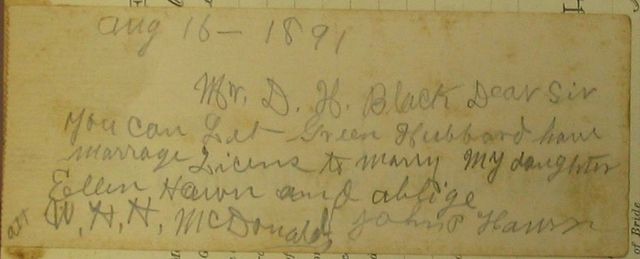 Aug 16 - 1891
Mr. D. H. Black Dear Sir
You can Let Green Hubbard have
marrage Licens to marry My daughter
Ellen Hawn and ablige
att W, H, H, McDonald John Hawn